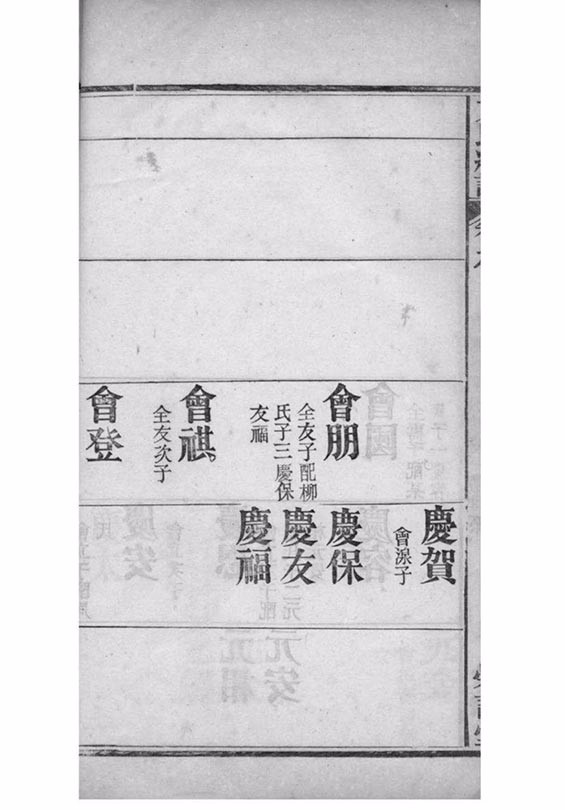 慶賀
會淚子
會朋
全友子配柳
氏子三慶保
友福
慶保
慶友
慶福
會祺
全友次子
會登